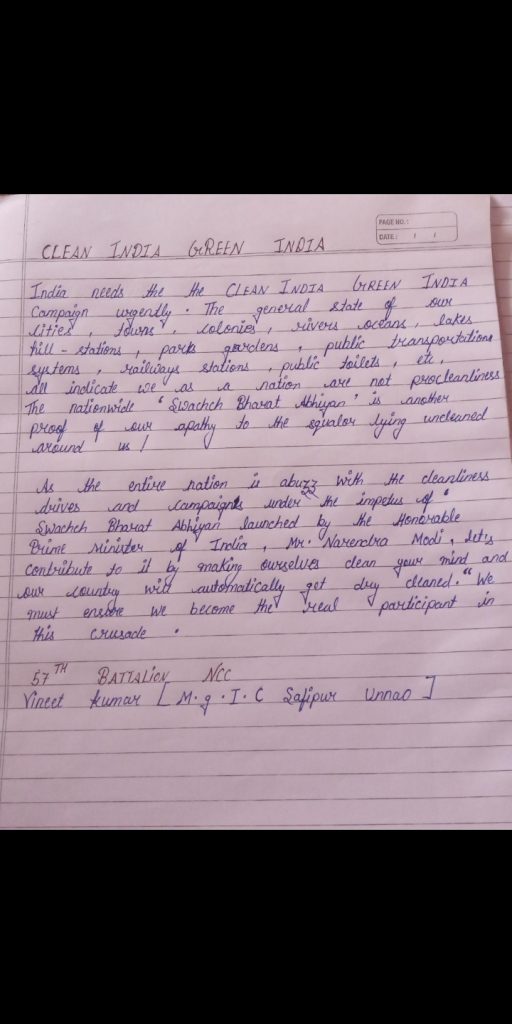 PAGE NO.:
DATE: / /
CLEAN INDIA GREEN INDIA
India needs the the CLEAN INDIA GREEN INDIA
Campaign urgently. The general state of our
cities, towns, colonies, rivers oceans, lakes
hill-stations, park gardens, public transportations
systems, railways stations, public toilets, etc,
all indicate we as a nation are not procleanliness
The nationwide "Swachch Bharat Abhiyan" is another
proof of our apathy to the squalor lying uncleaned
around us!
As the entire nation is abuzz with the cleanliness
drives and campaigns under the impetus of "
Swachch Bharat Abhiyan launched by the Honorable
Prime Minister of India, Mr. Narendra Modi, let's
contribute to it by making ourselves clean your mind and
our country will automatically get dry cleaned." We
must ensure we become the real participant in
this crusade.
57TH BATTALION NCC
Vineet Kumar [M.g.I.C Safipur Unnao]